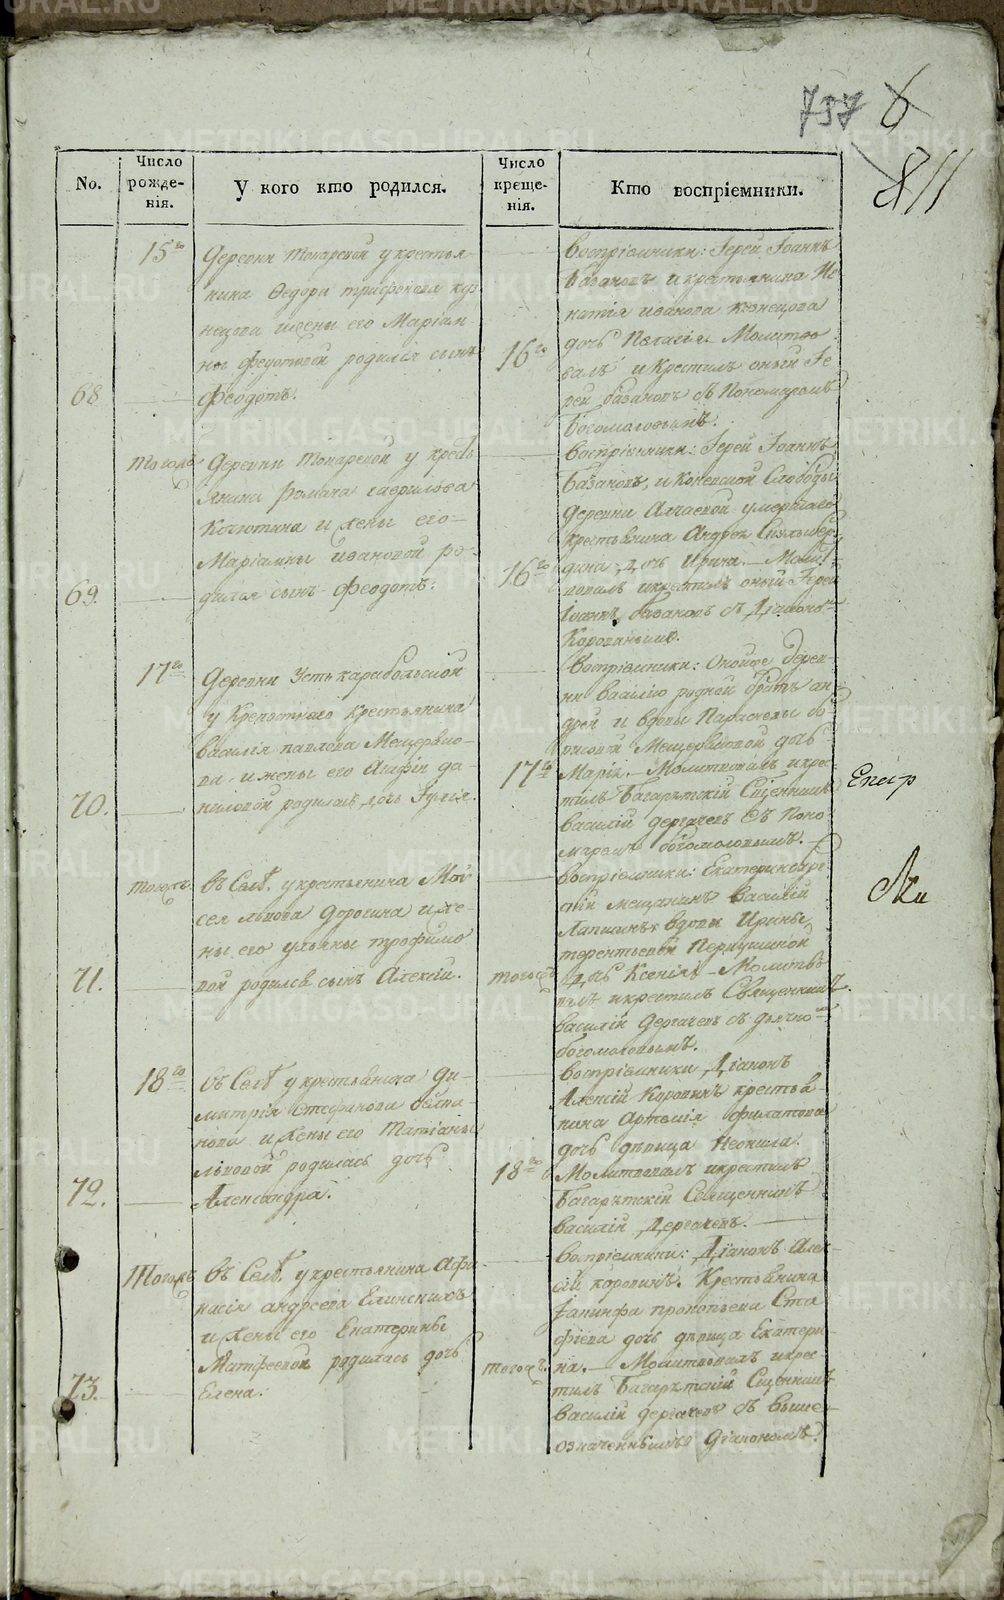 METRIKI.GASO-URAL.RU
737 6
811
No.
Число рожде-нія.
У кого кто родился.
Число креще-нія.
Кто воспріемники.
68
15го
Деревни Токаревой у крестья-
нина Ѳедора трифонова куз
нецова и жены его Маріам
ны федотовой родился сынъ
Феодотъ.
16го
воспріемники: Іерей Іоаннъ
Базановъ и крестьянина Иг
натія иванова кузнецова
дочь Пелагія. Молитво
валъ и Крестилъ оный Іе
рей базановъ съ Пономаремъ
Богомоловымъ.
69.
Тогожъ
Деревни Токаревой у кресть
янина Романа гаврилова
и жены его
Маріамны ивановой ро-
дился сынъ Феодотъ.
16го
воспріемники: Іерей Іоаннъ
Базановъ, и Коневской Слободы
деревни умершаго
крестьянина Андрея
дочь Ирина. Молит
вовалъ и крестилъ оный Іерей
Іоаннъ базановъ съ Діакономъ
Коровинымъ.
70.
17го
Деревни Усть карабольской
у Крепостнаго Крестьянина
василія павлова Мещеряко-
ва и жены его Агафіи да-
ниловой родилась дочь Іулія.
17го
Воспріемники: Оной же дерев-
ни василію родной братъ ан-
дрей и вдовы Парасковьи бо-
рисовой Мещеряковой дочь
Марія. Молитвовалъ и крес-
тилъ Багарятскій Священникъ
василій дергачевъ съ Поно-
маремъ богомоловымъ.
71.
тогожъ
въ Селѣ у крестьянина Мои
сея львова Дорогина и же-
ны его ульяны трофимо
вой родился сынъ Алексій.
тогожъ
воспріемники: Екатеринбург-
скій мещанинъ Василій
Лапшинъ и вдовы Ирины
терентьевой Первушиной
дочь Ксенія. Молитво
валъ и крестилъ Священникъ
василій Дергачевъ съ дьячко
богомоловымъ.
72.
18го
въ Селѣ у крестьянина Ди-
митрія Стефанова
и жены его Татіаны
львовой родилась дочь
Александра.
18го
воспріемники Діаконъ
Алексій Коровинъ крестья-
нина Артемія филатова
дочь дѣвица Неонила.
Молитвовалъ и крестилъ
Багарятскій Священникъ
василій Дергачевъ.
73.
Тогожъ
въ Селѣ у крестьянина Афа
насія андреева Елинскихъ
и жены его Екатерины
Матфеевой родилась дочь
Елена.
тогожъ
воспріемники: Діаконъ Алек
сій коровинъ. Крестьянина
Іакинфа прокопьева Ста
фіева дочь дѣвица Екатери-
на. Молитвовалъ и крес-
тилъ Багарятскій Священникъ
василій дергачевъ съ выше-
означеннымъ діакономъ.